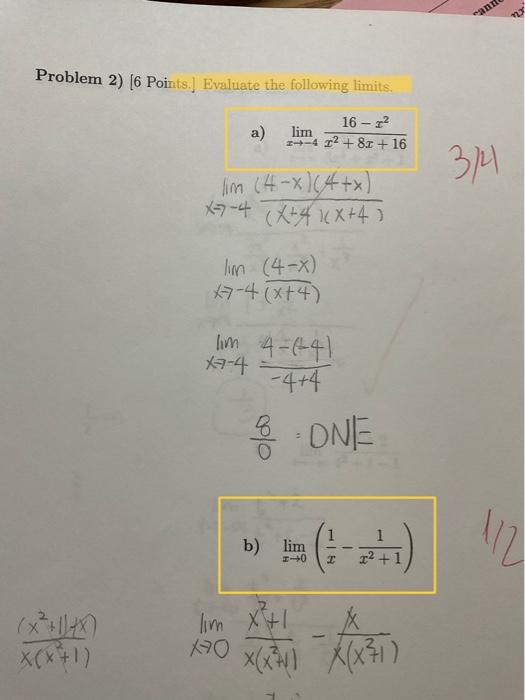 cann
Problem 2) [6 Points.] Evaluate the following limits.
a) lim x→-4 (16 − x²)/(x² + 8x + 16)
3/4
lim x→-4 (4-x)(4+x)/(x+4)(x+4)
lim x→-4 (4-x)/(x+4)
lim x→-4 4-(-4)/-4+4
8/0 = DNE
b) lim x→0 (1/x − 1/(x² + 1))
1/2
(x²+1)-(x)/x(x²+1)
lim x→0 x²+1/x(x²+1) - x/x(x²+1)